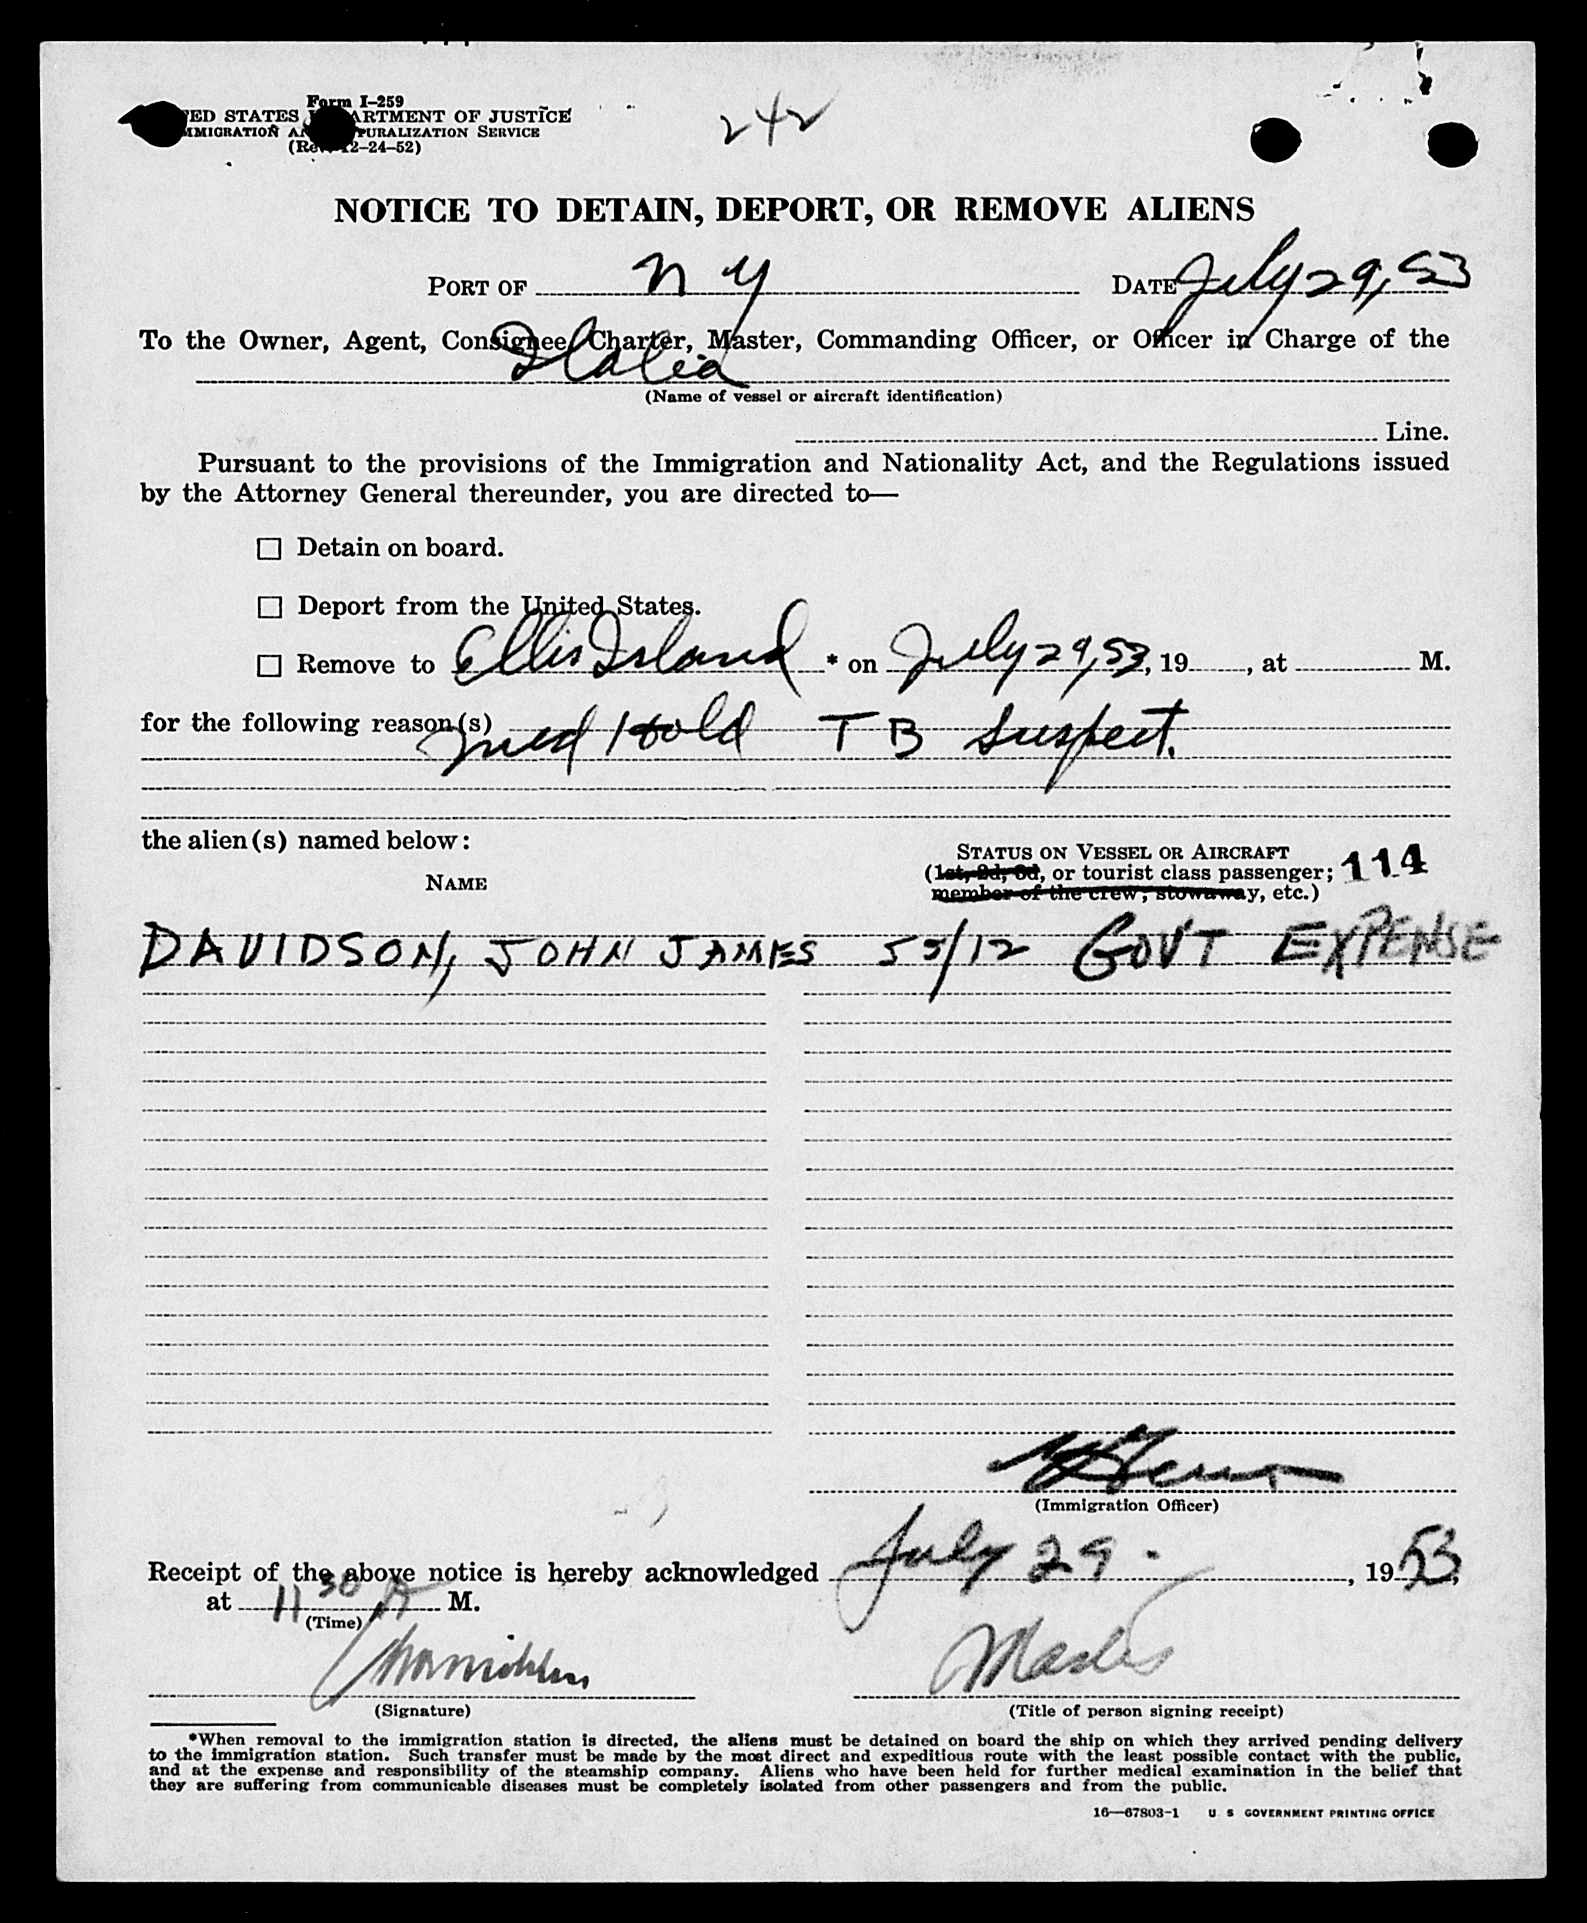 Form I-259
ED STATES ARTMENT OF JUSTICE
MMIGRATION TURALIZATION SERVICE
2-24-52)
242
NOTICE TO DETAIN, DEPORT, OR REMOVE ALIENS
PORT OF N Y DATE July 29, 53
To the Owner, Agent, Consignee, Charter, Master, Commanding Officer, or Officer in Charge of the
Italia
(Name of vessel or aircraft identification)
Line.
Pursuant to the provisions of the Immigration and Nationality Act, and the Regulations issued
by the Attorney General thereunder, you are directed to—
☐ Detain on board.
☐ Deport from the United States.
☐ Remove to Ellis Island * on July 29, 53, 19 , at M.
for the following reason(s) Med Hold TB Suspect.
the alien(s) named below:
STATUS ON VESSEL OR AIRCRAFT
NAME (1st, 2d, 3d, or tourist class passenger; 114
member of the crew, stowaway, etc.)
DAVIDSON, JOHN JAMES 55/12 GOV'T EXPENSE
(Immigration Officer)
Receipt of the above notice is hereby acknowledged July 29 - , 1953,
at 11 30 A M.
(Time)
(Signature) (Title of person signing receipt)
*When removal to the immigration station is directed, the aliens must be detained on board the ship on which they arrived pending delivery
to the immigration station. Such transfer must be made by the most direct and expeditious route with the least possible contact with the public,
and at the expense and responsibility of the steamship company. Aliens who have been held for further medical examination in the belief that
they are suffering from communicable diseases must be completely isolated from other passengers and from the public.
16—67803-1 U S GOVERNMENT PRINTING OFFICE